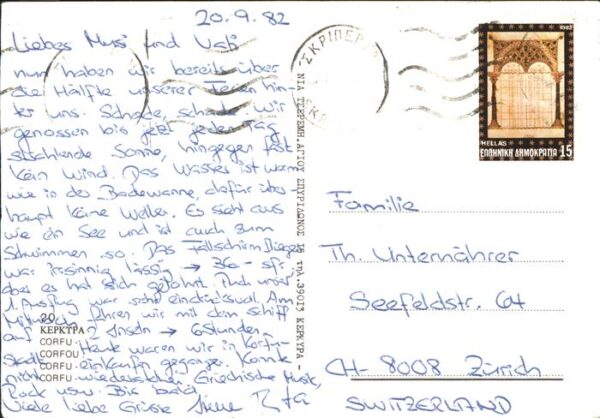 20.9.82
Liebes Musi und Vati
nun haben wir bereits über
die Hälfte unserer Ferien hin-
ter uns. Schade, schade. Wir
genossen bis jetzt jeden Tag
strahlende Sonne, hingegen fast
kein Wind. Das Wasser ist warm
wie in der Badewanne, dafür über-
haupt keine Wellen. Es sieht aus
wie ein See und ist auch zum
Schwimmen so. Das Fallschirmfliegen
war irrsinnig lässig → 36.- sfr.,
aber es hat sich gelohnt. Auch unser
1. Ausflug war sehr eindrücksvoll. Am
Mittwoch fahren wir mit dem Schiff
auf 2 Inseln → 6 Stunden.
Heute waren wir in Korfu-
Stadt einkaufen gegangen. Konnte
nicht wiederstehen Griechische Musik,
Rock usw. Bis bald
viele liebe Grüsse
20
ΚΕΡΚΥΡΑ
CORFU
CORFOU
CORFU
CORFU
ΝΙΑ ΤΣΕΡΕΜΗ.ΑΓΙΟΥ ΣΠΥΡΙΔΩΝΟΣ ΤΗΛ.39013 ΚΕΡΚΥΡΑ -
ΣΚΡΙΠΕΡΟ
1982
HELLAS
ΕΛΛΗΝΙΚΗ ΔΗΜΟΚΡΑΤΙΑ 15
Familie
Th. Unternährer
Seefeldstr. 64
CH-8008 Zürich
SWITZERLAND